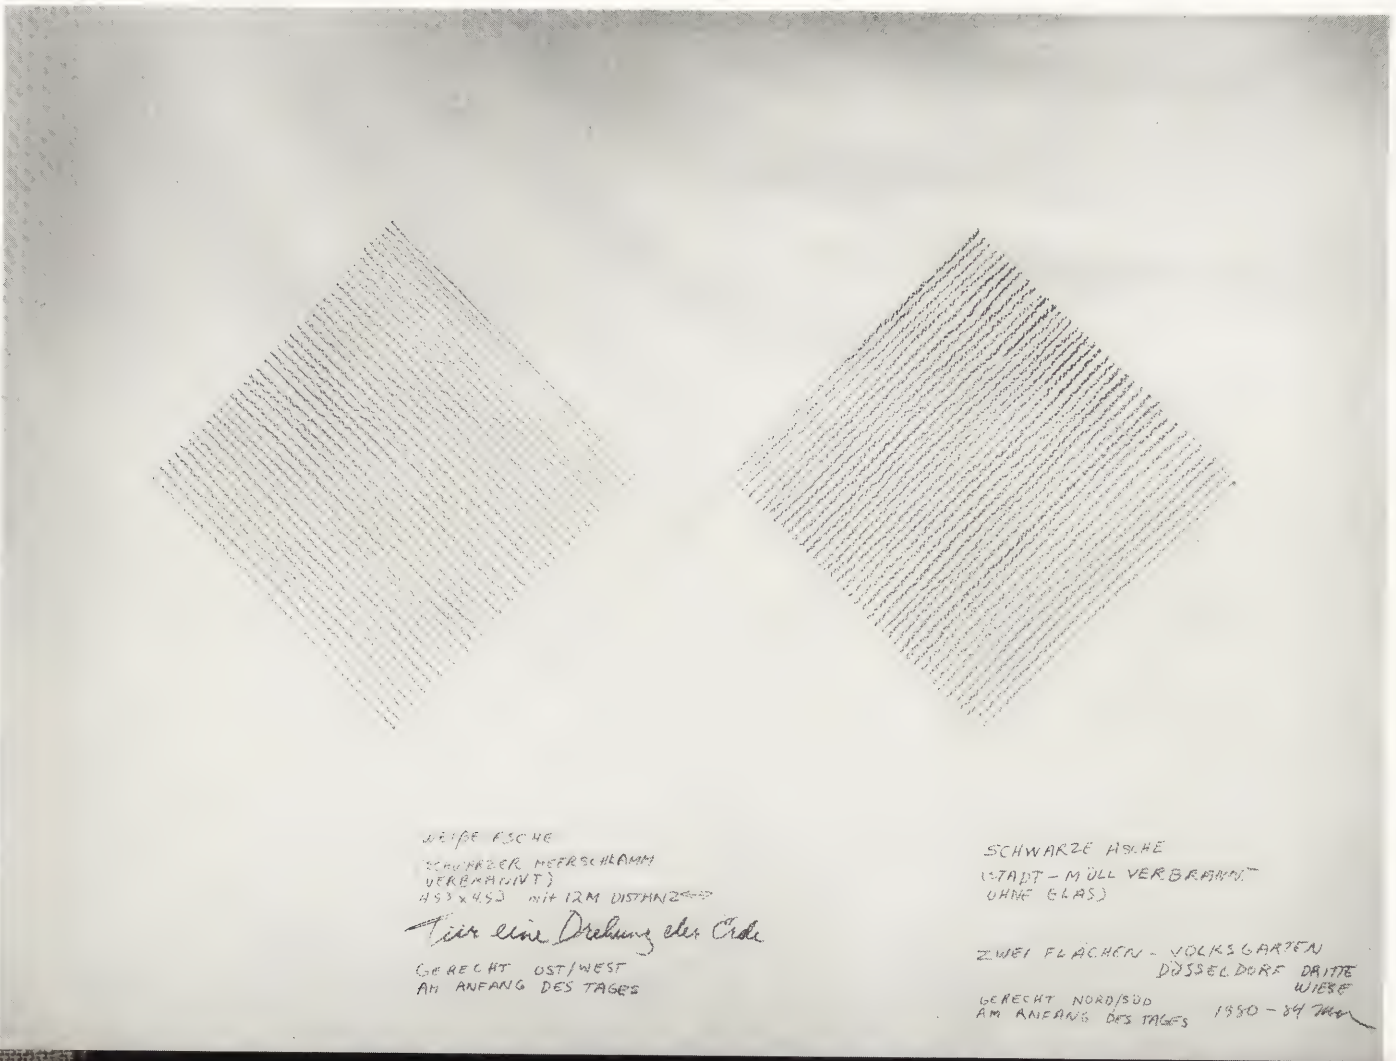 WEIßE ASCHE
(SCHWARZER MEERSCHLAMM
VERBRANNT)
453 x 453 mit 12M DISTANZ
Für eine Drehung der Erde
GERECHT OST/WEST
AM ANFANG DES TAGES
SCHWARZE ASCHE
(STADT-MÜLL VERBRANNT
OHNE GLAS)
ZWEI FLÄCHEN - VOLKSGARTEN
DÜSSELDORF DRITTE
WIESE
GERECHT NORD/SÜD
AM ANFANG DES TAGES 1980-84